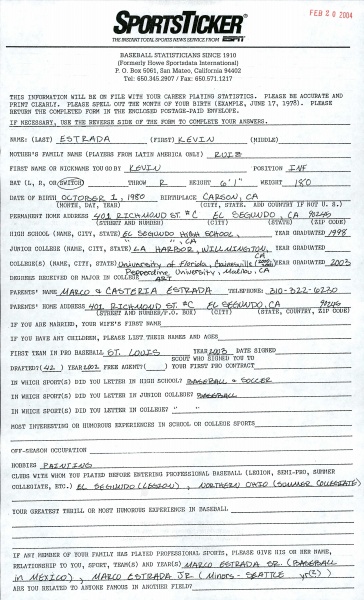 SPORTSTICKER®
FEB 20 2004
THE INSTANT TOTAL SPORTS NEWS SERVICE FROM ESPN
BASEBALL STATISTICIANS SINCE 1910
(Formerly Howe Sportsdata International)
P. O. Box 5061, San Mateo, California 94402
Tel: 650.345.2907 / Fax: 650.571.1217
THIS INFORMATION WILL BE ON FILE WITH YOUR CAREER PLAYING STATISTICS. PLEASE BE ACCURATE AND
PRINT CLEARLY. PLEASE SPELL OUT THE MONTH OF YOUR BIRTH (EXAMPLE, JUNE 17, 1978). PLEASE
RETURN THE COMPLETED FORM IN THE ENCLOSED POSTAGE-PAID ENVELOPE.
IF NECESSARY, USE THE REVERSE SIDE OF THE FORM TO COMPLETE YOUR ANSWERS.
NAME: (LAST) ESTRADA (FIRST) KEVIN (MIDDLE)
MOTHER'S FAMILY NAME (PLAYERS FROM LATIN AMERICA ONLY) RUIZ
FIRST NAME OR NICKNAME YOU GO BY KEVIN POSITION INF
BAT (L, R, OR SWITCH) THROW R HEIGHT 6'1" WEIGHT 180
DATE OF BIRTH OCTOBER 1, 1980 BIRTHPLACE CARSON, CA
(MONTH, DAY, YEAR) (CITY, STATE. ADD COUNTRY IF NOT U.S.)
PERMANENT HOME ADDRESS 401 RICHMOND ST. #C EL SEGUNDO, CA 90245
(STREET AND NUMBER) (CITY) (STATE, COUNTRY) (ZIP CODE)
HIGH SCHOOL (NAME, CITY, STATE) EL SEGUNDO HIGH SCHOOL, YEAR GRADUATED 1998
" ", CA
JUNIOR COLLEGE (NAME, CITY, STATE) LA HARBOR, WILMINGTON, CA YEAR GRADUATED
COLLEGE(S) (NAME, CITY, STATE) University of Florida, Gainesville YEAR GRADUATED 2003
Pepperdine University, Malibu, CA
DEGREES RECEIVED OR MAJOR IN COLLEGE ART
PARENTS' NAME MARCO & CASTERIA ESTRADA TELEPHONE: 310-322-6230
PARENTS' HOME ADDRESS 401 RICHMOND ST. #C EL SEGUNDO, CA 90245
(STREET AND NUMBER/P.O. BOX) (CITY) (STATE, COUNTRY, ZIP CODE)
IF YOU ARE MARRIED, YOUR WIFE'S FIRST NAME
IF YOU HAVE ANY CHILDREN, PLEASE LIST THEIR NAMES AND AGES
FIRST TEAM IN PRO BASEBALL ST. LOUIS YEAR 2003 DATE SIGNED
SCOUT WHO SIGNED YOU TO
DRAFTED? (42) YEAR 2002 FREE AGENT( ) YOUR FIRST PRO CONTRACT
IN WHICH SPORT(S) DID YOU LETTER IN HIGH SCHOOL? BASEBALL & SOCCER
IN WHICH SPORT(S) DID YOU LETTER IN JUNIOR COLLEGE? BASEBALL
IN WHICH SPORT(S) DID YOU LETTER IN COLLEGE? " "
MOST INTERESTING OR HUMOROUS EXPERIENCES IN SCHOOL OR COLLEGE SPORTS
OFF-SEASON OCCUPATION
HOBBIES PAINTING
CLUBS WITH WHOM YOU PLAYED BEFORE ENTERING PROFESSIONAL BASEBALL (LEGION, SEMI-PRO, SUMMER
COLLEGIATE, ETC.) EL SEGUNDO (LEGION), NORTHERN OHIO (SUMMER COLLEGIATE)
YOUR GREATEST THRILL OR MOST HUMOROUS EXPERIENCE IN BASEBALL
IF ANY MEMBER OF YOUR FAMILY HAS PLAYED PROFESSIONAL SPORTS, PLEASE GIVE HIS OR HER NAME,
RELATIONSHIP TO YOU, SPORT, TEAM(S) AND YEAR(S) MARCO ESTRADA SR. (BASEBALL
in MEXICO), MARCO ESTRADA JR. (Minors - SEATTLE yr(3))
ARE YOU RELATED TO ANYONE FAMOUS IN ANOTHER FIELD?